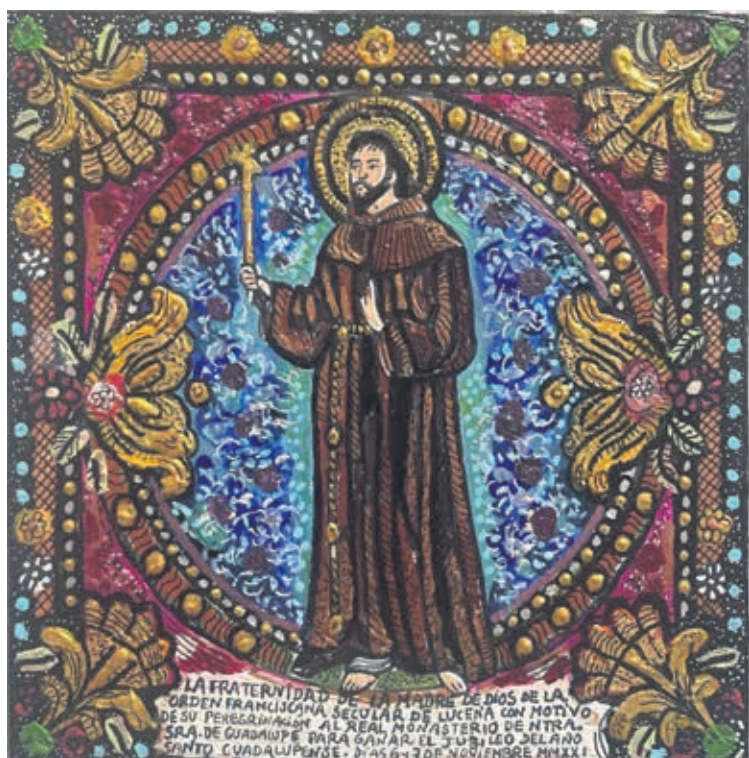 LA FRATERNIDAD DE LA MADRE DE DIOS DE LA
ORDEN FRANCISCANA SECULAR DE LUCENA CON MOTIVO
DE SU PEREGRINACION AL REAL MONASTERIO DE NTRA.
SRA. DE GUADALUPE PARA GANAR EL JUBILEO DEL AÑO
SANTO GUADALUPENSE. DIAS 6 Y 7 DE NOVIEMBRE MMXXI